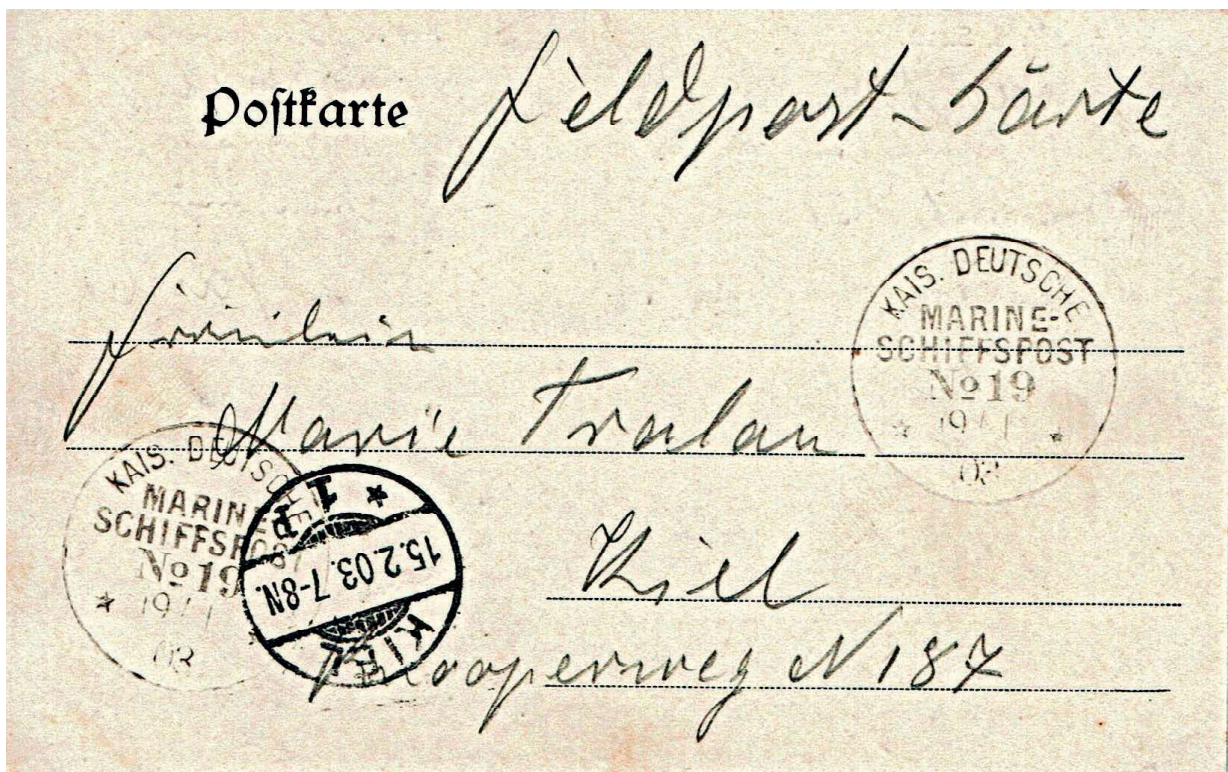 Poſtkarte
Feldpost-Karte
Fräulein
Marie Tralau
Kiel
Knooperweg N 187
KAIS. DEUTSCHE
MARINE-
SCHIFFSPOST
No 19
19/1
03
KAIS. DEUTSCHE
MARINE-
SCHIFFSPOST
No 19
19/1
03
KIEL
15.2.03.7-8N.
* 1 P